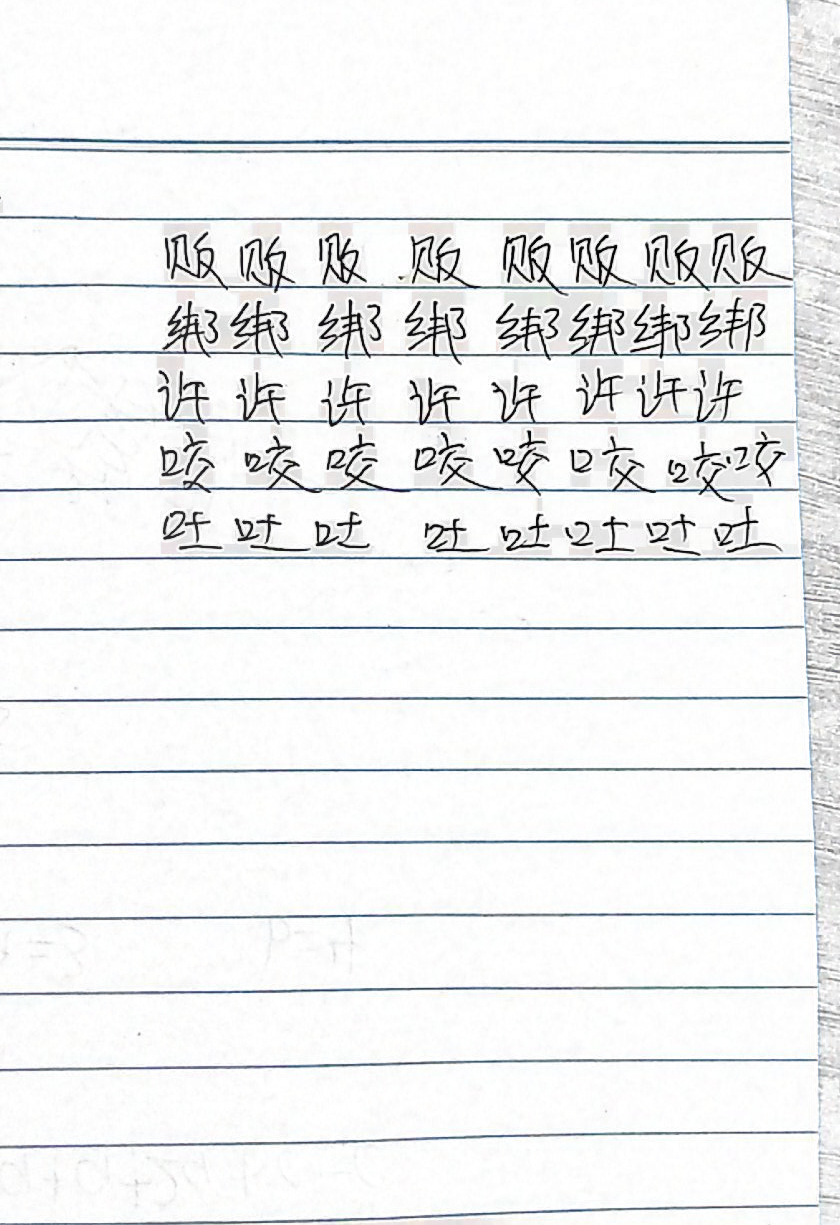 败 败 败 败 败 败 败 败
绑 绑 绑 绑 绑 绑 绑 绑
许 许 许 许 许 许 许 许
咬 咬 咬 咬 咬 咬 咬 咬
吐 吐 吐 吐 吐 吐 吐 吐